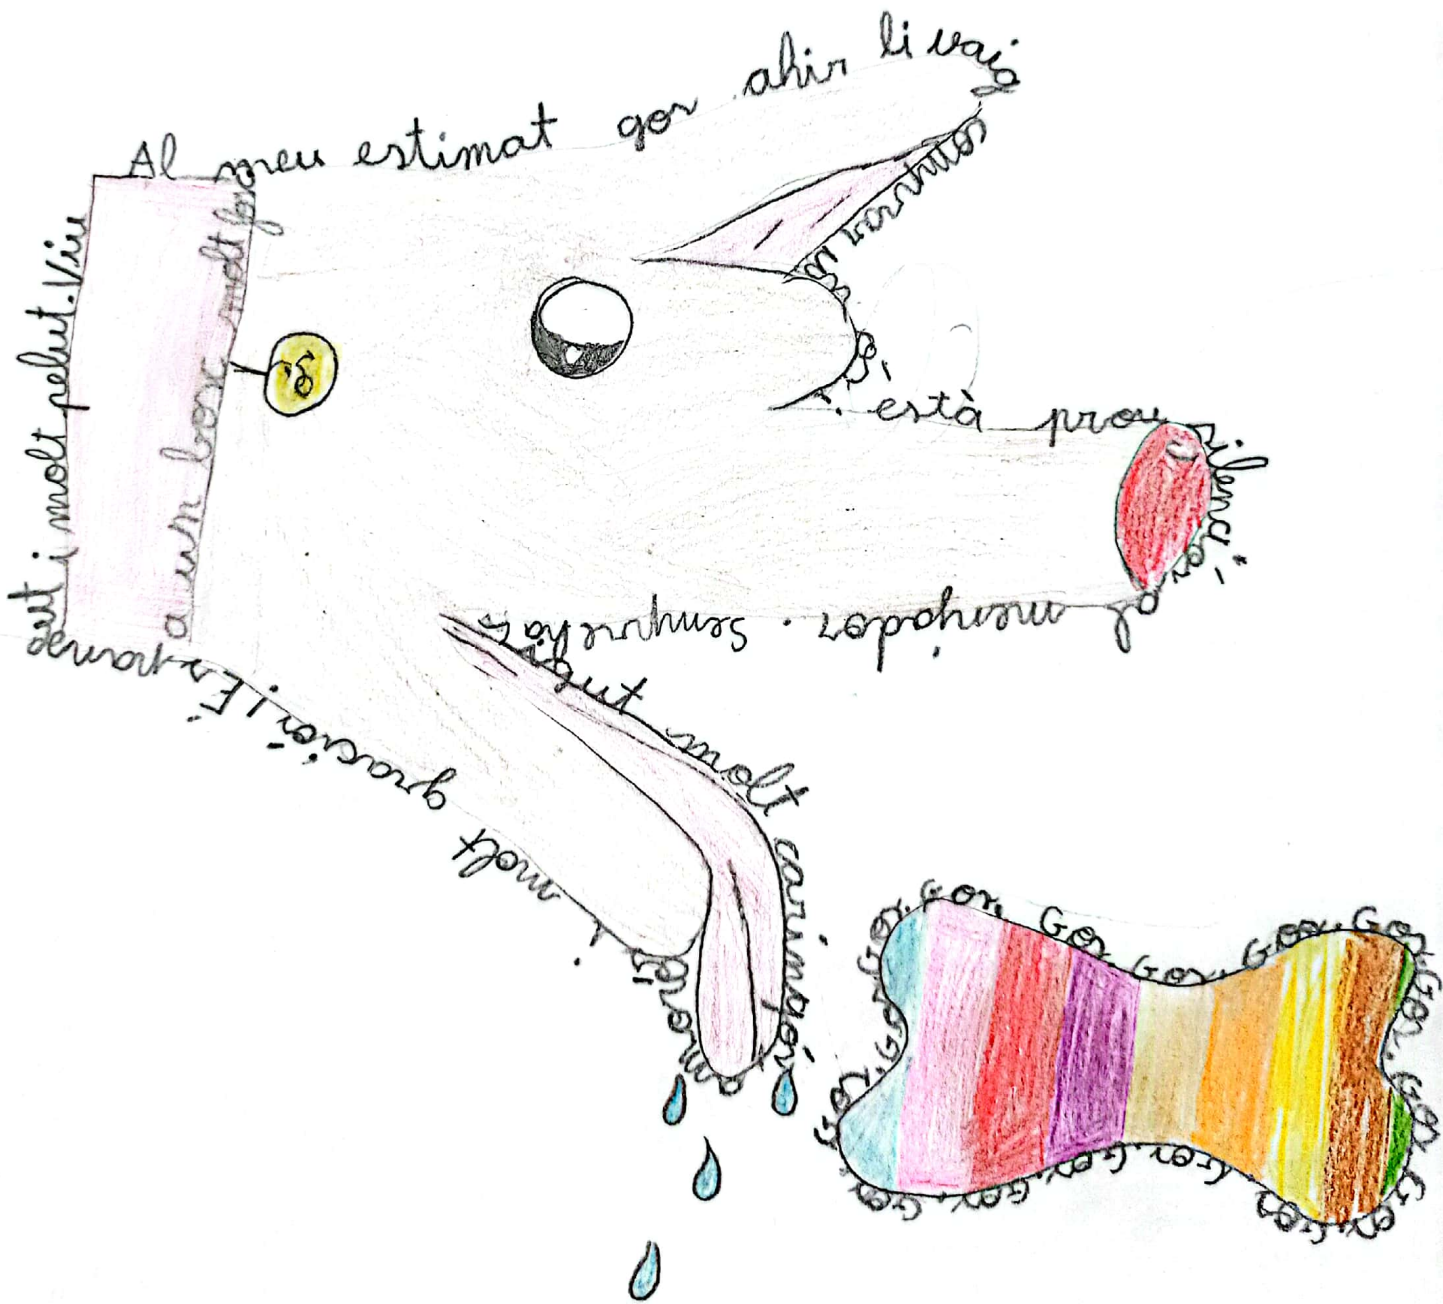 Al meu estimat gos ahir li vaig
comprar un
os.
està prou
silenciós
al menjador. Sempre ha
sigut molt
carinyós
amorós
i molt graciós! És
i molt pelut. Viu
a un bosc molt fosc
Gos. Gos. Gos. Gos. Gos. Gos. Gos. Gos. Gos. Gos. Gos. Gos. Gos. Gos. Gos. Gos. Gos. Gos. Gos.